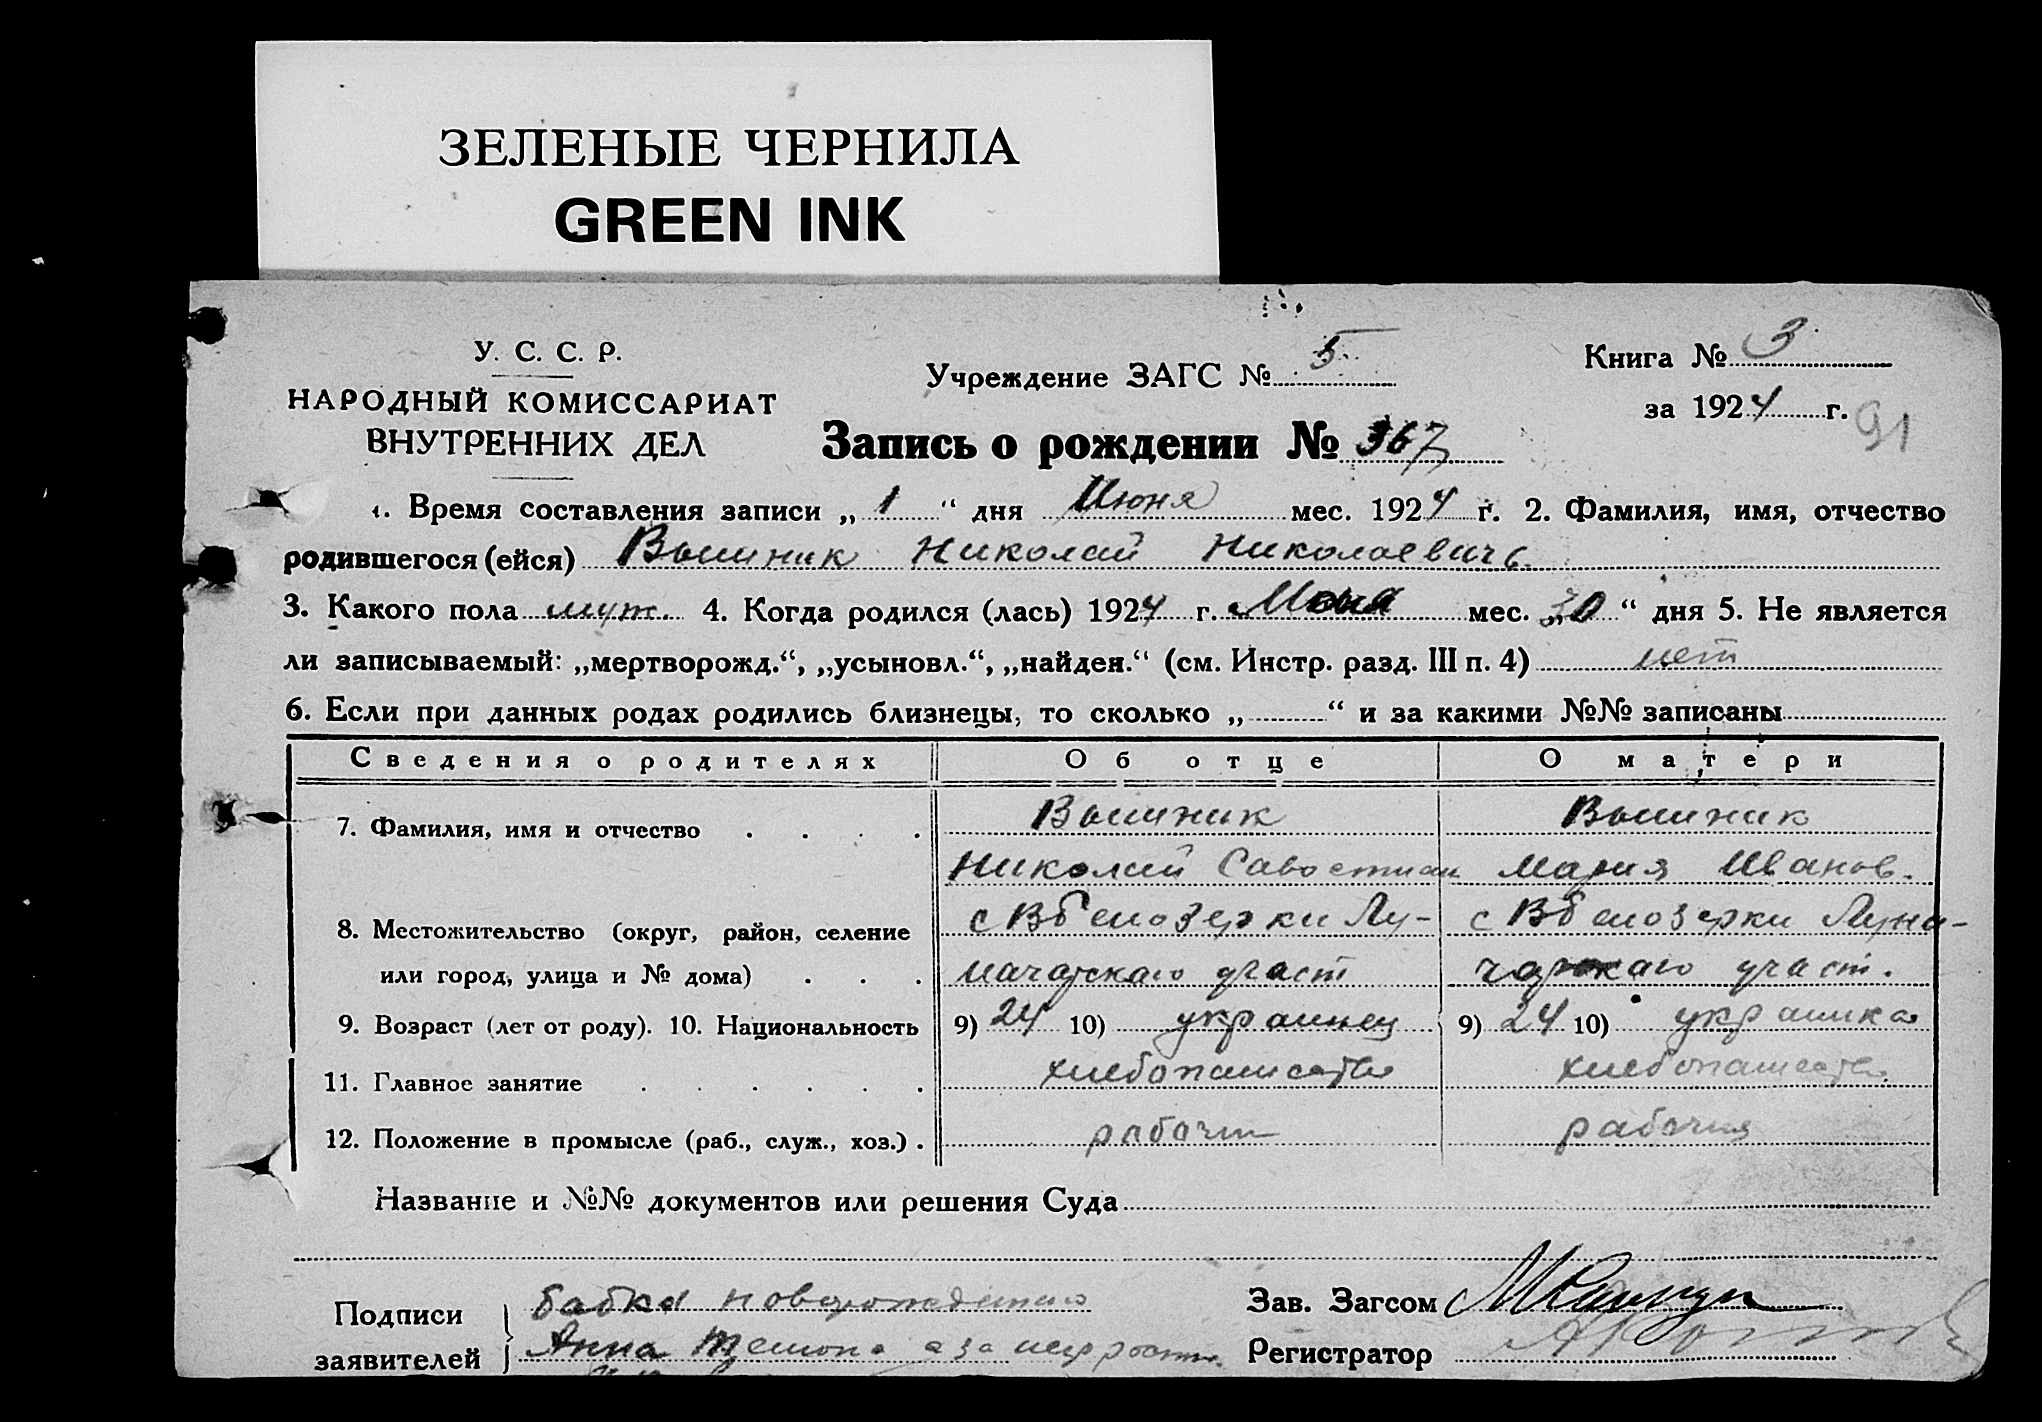 ЗЕЛЕНЫЕ ЧЕРНИЛА
GREEN INK
У. С. С. Р.
НАРОДНЫЙ КОМИССАРИАТ
ВНУТРЕННИХ ДЕЛ
Учреждение ЗАГС № 5
Книга № 3
за 1924 г.
91
Запись о рождении № 367
1. Время составления записи „ 1 “ дня Июня мес. 1924 г. 2. Фамилия, имя, отчество
родившегося (ейся) Вышник Николай Николаевичь
3. Какого пола муж. 4. Когда родился (лась) 1924 г. мес. „30“ дня 5. Не является
ли записываемый: „мертворожд.“, „усыновл.“, „найден.“ (см. Инстр. разд. III п. 4) нет
6. Если при данных родах родились близнецы, то сколько „ “ и за какими №№ записаны
Сведения о родителях Об отце О матери
7. Фамилия, имя и отчество Вышник Вышник
Николай Савостиан Мария Иванов.
8. Местожительство (округ, район, селение с В белозерки Лу- с В белозерки Луна-
или город, улица и № дома) начарскаго участ чарскаго участ.
9. Возраст (лет от роду). 10. Национальность 9) 24 10) украинец 9) 24 10) украинка
11. Главное занятие хлебопашество хлебопашество
12. Положение в промысле (раб., служ., хоз.) рабочий рабочия
Название и №№ документов или решения Суда
Подписи
заявителей
бабка новорожденаго
Анна а за неграмотн.
Зав. Загсом
Регистратор